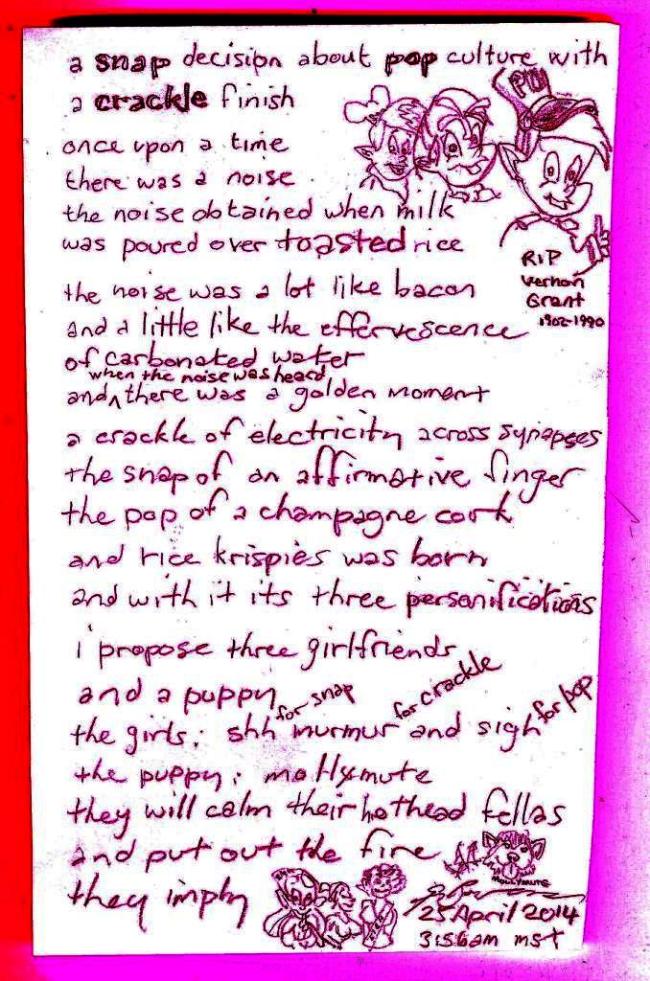 a snap decision about pop culture with
a crackle finish
POP
once upon a time
there was a noise
the noise obtained when milk
was poured over toasted rice
RIP
Vernon
Grant
1902-1990
the noise was a lot like bacon
and a little like the effervescence
of carbonated water
when the noise was heard
and ^ there was a golden moment
a crackle of electricity across synapses
the snap of an affirmative finger
the pop of a champagne cork
and rice krispies was born
and with it its three personifications
i propose three girlfriends
and a puppy
for snap for crackle for pop
the girls: shh murmur and sigh
the puppy: mollymute
they will calm their hothead fellas
and put out the fire
MOLLYMUTE
they imply
25 April 2014
3:56am mst